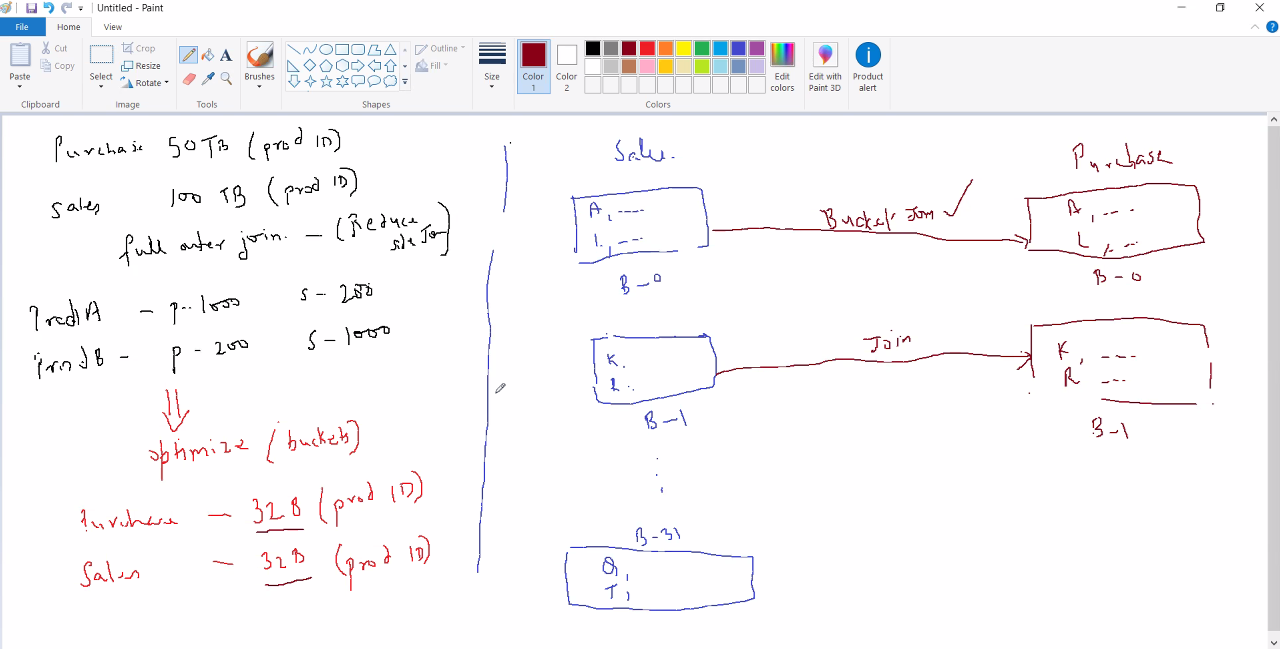 Untitled - Paint
File Home View
Paste
Cut
Copy
Clipboard
Select
Crop
Resize
Rotate
Image
Tools
Brushes
Outline
Fill
Shapes
Size
Color 1
Color 2
Edit colors
Colors
Edit with Paint 3D
Product alert
Purchase 50 TB (prod ID)
Sales 100 TB (prod ID)
full outer join. - (Reduce side Join)
ProdA - P - 1000 S - 200
ProdB - P - 200 S - 1000
optimize (buckets)
Purchase - 32B (prod ID)
Sales - 32B (prod ID)
Sales.
A, ----
L, ---
B-0
K.
R..
B-1
B-31
Q,
T,
Bucket Join ✓
Join
Purchase
A, ----
L, ---
B-0
K, ----
R ---
B-1